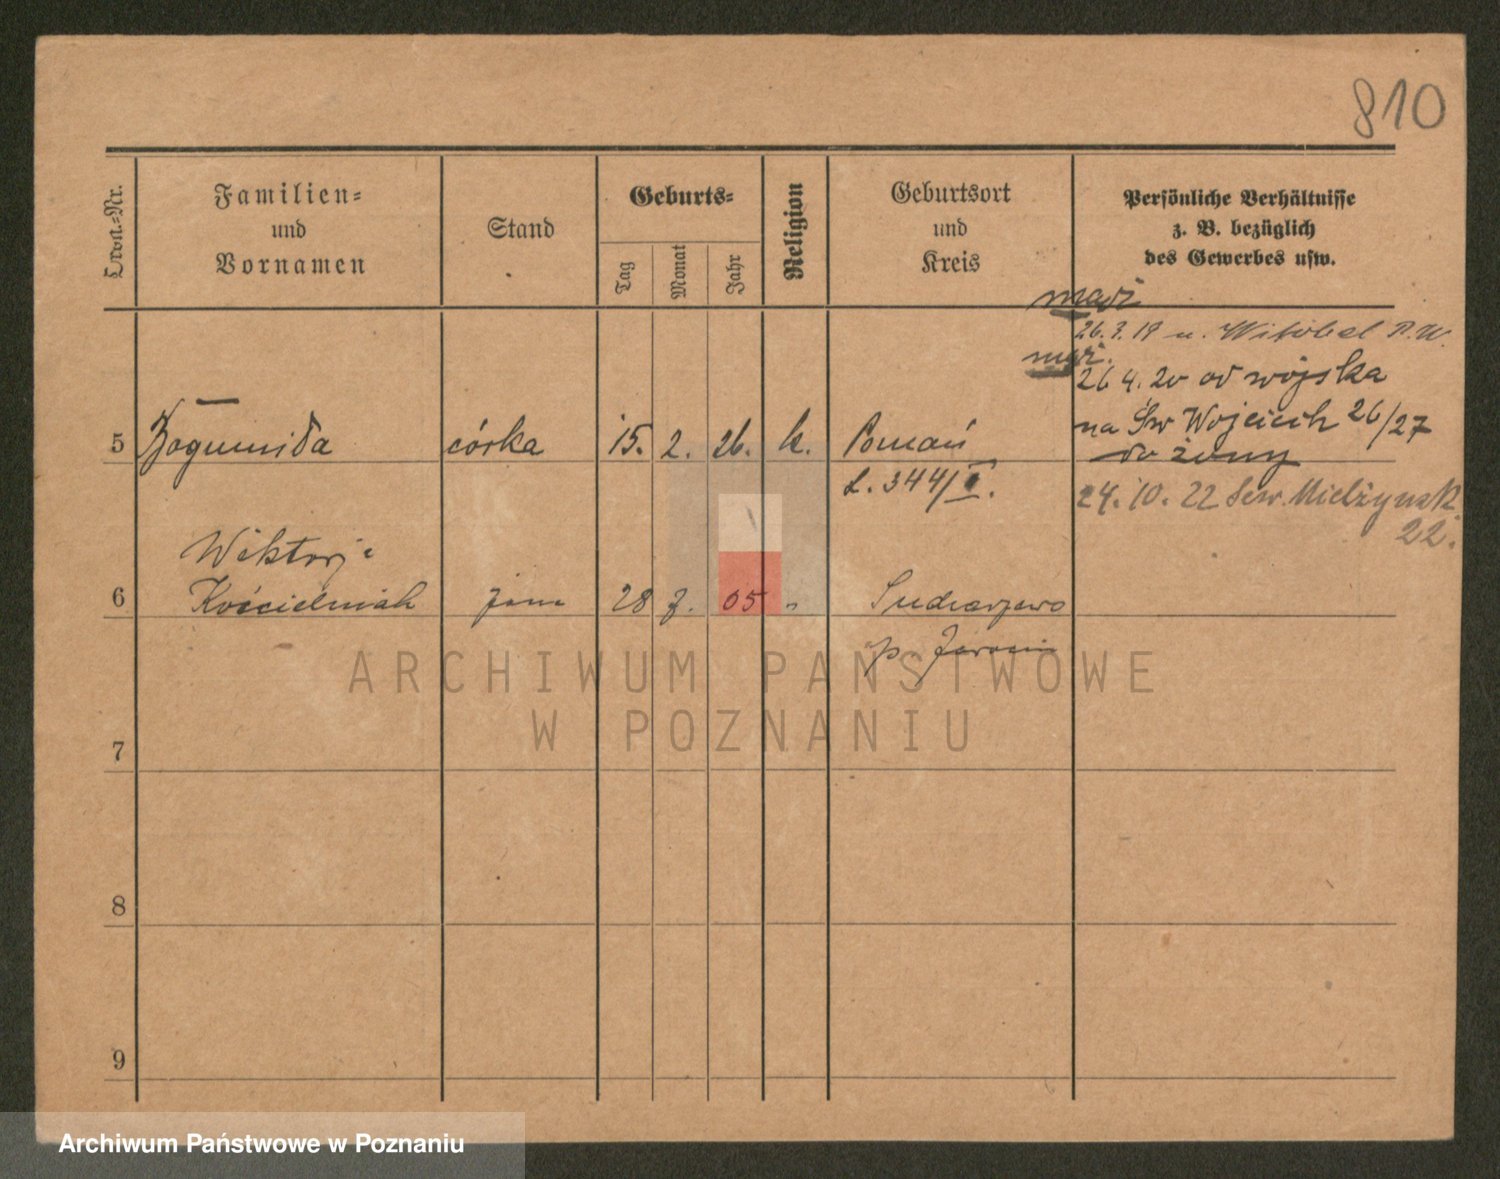 810
Ordn.-Nr.
Familien-
und
Vornamen
Stand
Geburts-
Tag
Monat
Jahr
Religion
Geburtsort
und
Kreis
Persönliche Verhältnisse
z. B. bezüglich
des Gewerbes usw.
mąż
26.3.19 u. Witobel P.W.
mąż.
26 4. 20 od wojska
na Św Wojciech 26/27
do żony
5 Bogumiła córka 15. 2. 26. k. Poznań
L. 344/II.
24. 10. 22 Sew. Mielżynsk
22.
Wiktorja
6 Kościelniak żona 28 7. 05 "
p. Jarocin
ARCHIWUM PAŃSTWOWE
W POZNANIU
7
8
9
Archiwum Państwowe w Poznaniu